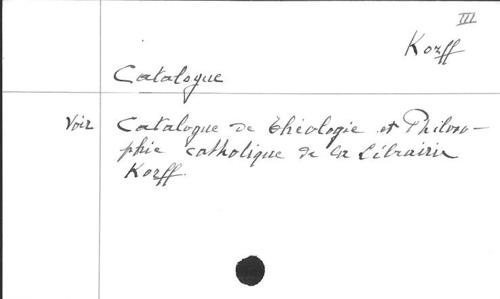 III
Korff
Catalogue
Voir Catalogue de théologie et Philoso-
phie catholique de la Librairie
Korff.